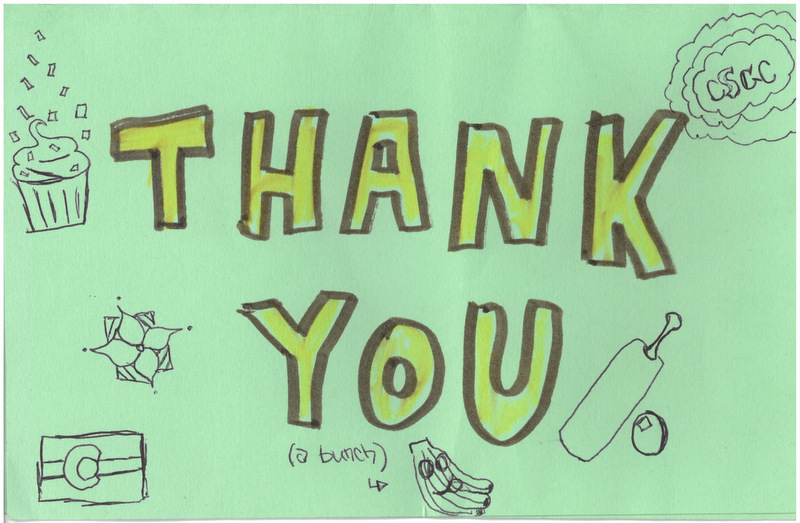 CSGC
THANK
YOU
(a bunch)